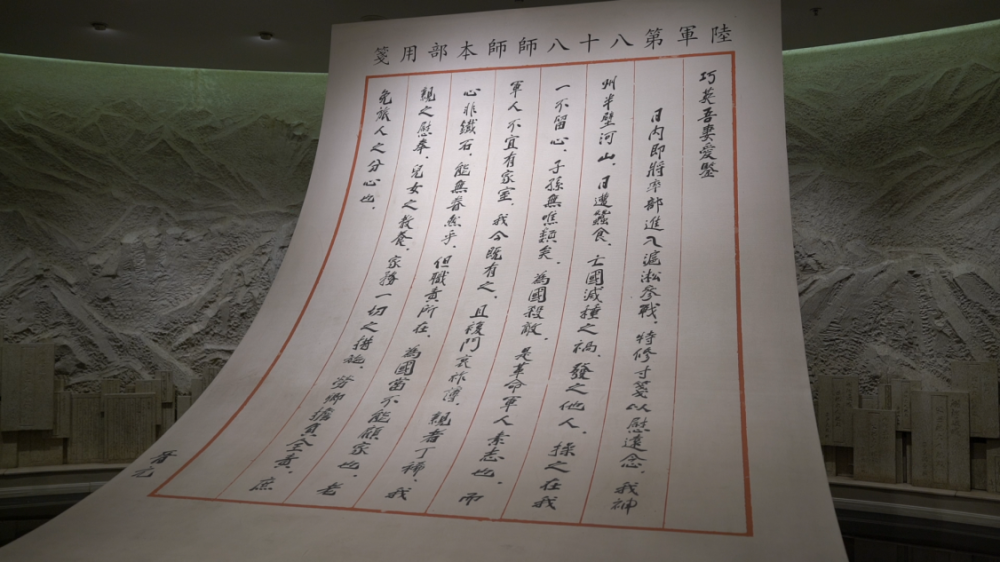 陸軍第八十八師師本部用箋
巧英吾妻愛鑒
日內即將率部進入滬淞參戰,特修寸箋以慰遠念,我神
州半壁河山,日遭蠶食,亡國滅種之禍,發之他人,操之在我
一不留心,子孫無噍類矣,為國殺敵,是革命軍人素志也,而
軍人不宜有家室,我今既有之,且復門衰祚薄,親者丁稀,我
心非鐵石,能無眷然乎,但職責所在,為國當不能顧家也,老
親之慰奉,兒女之教養,家務一切之措施,勞卿擔負全責,庶
免旅人之分心也.
晉元